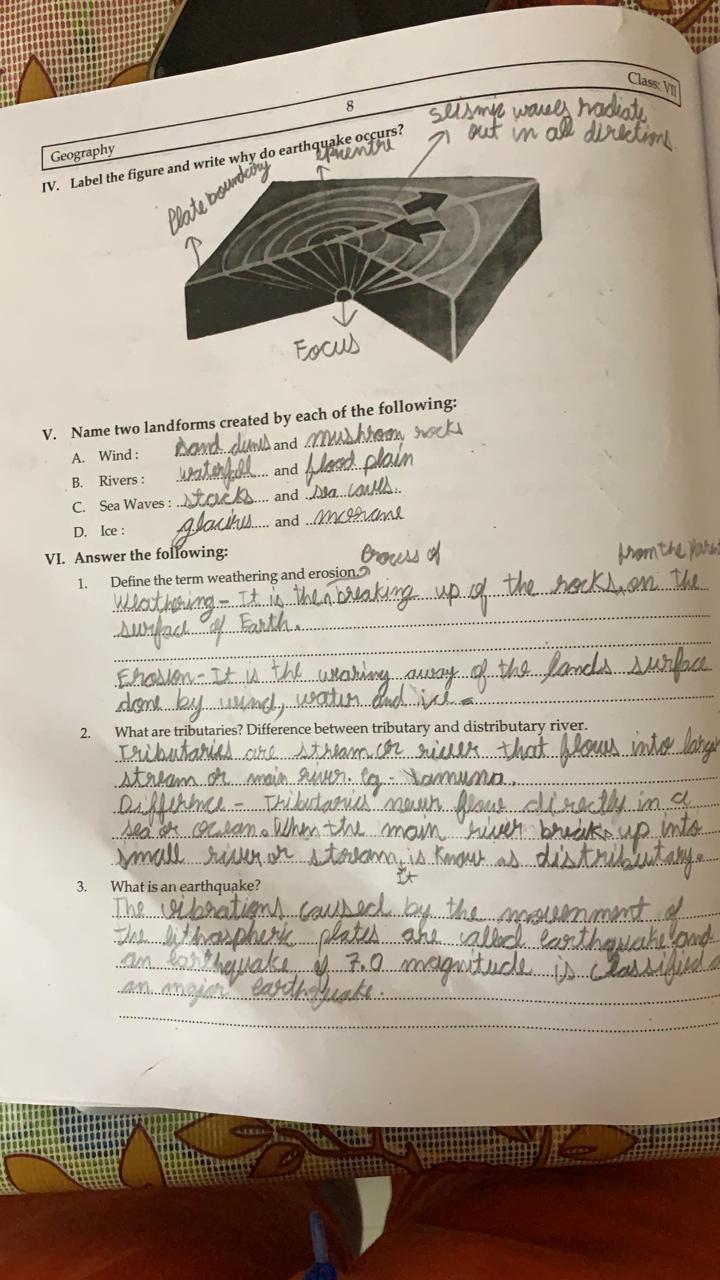 Class: VII
8
Geography
IV. Label the figure and write why do earthquake occurs?
seismic waves radiate
out in all directions.
epicentre
Plate boundary
Focus
V. Name two landforms created by each of the following:
A. Wind : Sand dunes and mushroom rocks
B. Rivers : waterfall and flood plain
C. Sea Waves : stacks and sea caves.
D. Ice : and
VI. Answer the following:
1. Define the term weathering and erosion.
process of
from the
Weathering - It is the breaking up of the rocks, on the
surface of Earth.
Erosion - It is the wearing away of the lands surface
done by wind, water and ice.
2. What are tributaries? Difference between tributary and distributary river.
Tributaries are stream or river that flows into larger
stream or main river. eg - Yamuna.
Difference - Tributaries never flow directly in a
sea or ocean. When the main river breaks up into
small river or stream, is know as distributary.
It
3. What is an earthquake?
The vibrations caused by the movenment of
the lithospheric plates are called earthquake and
an earthquake of 7.0 magnitude is classified
an major earthquake.